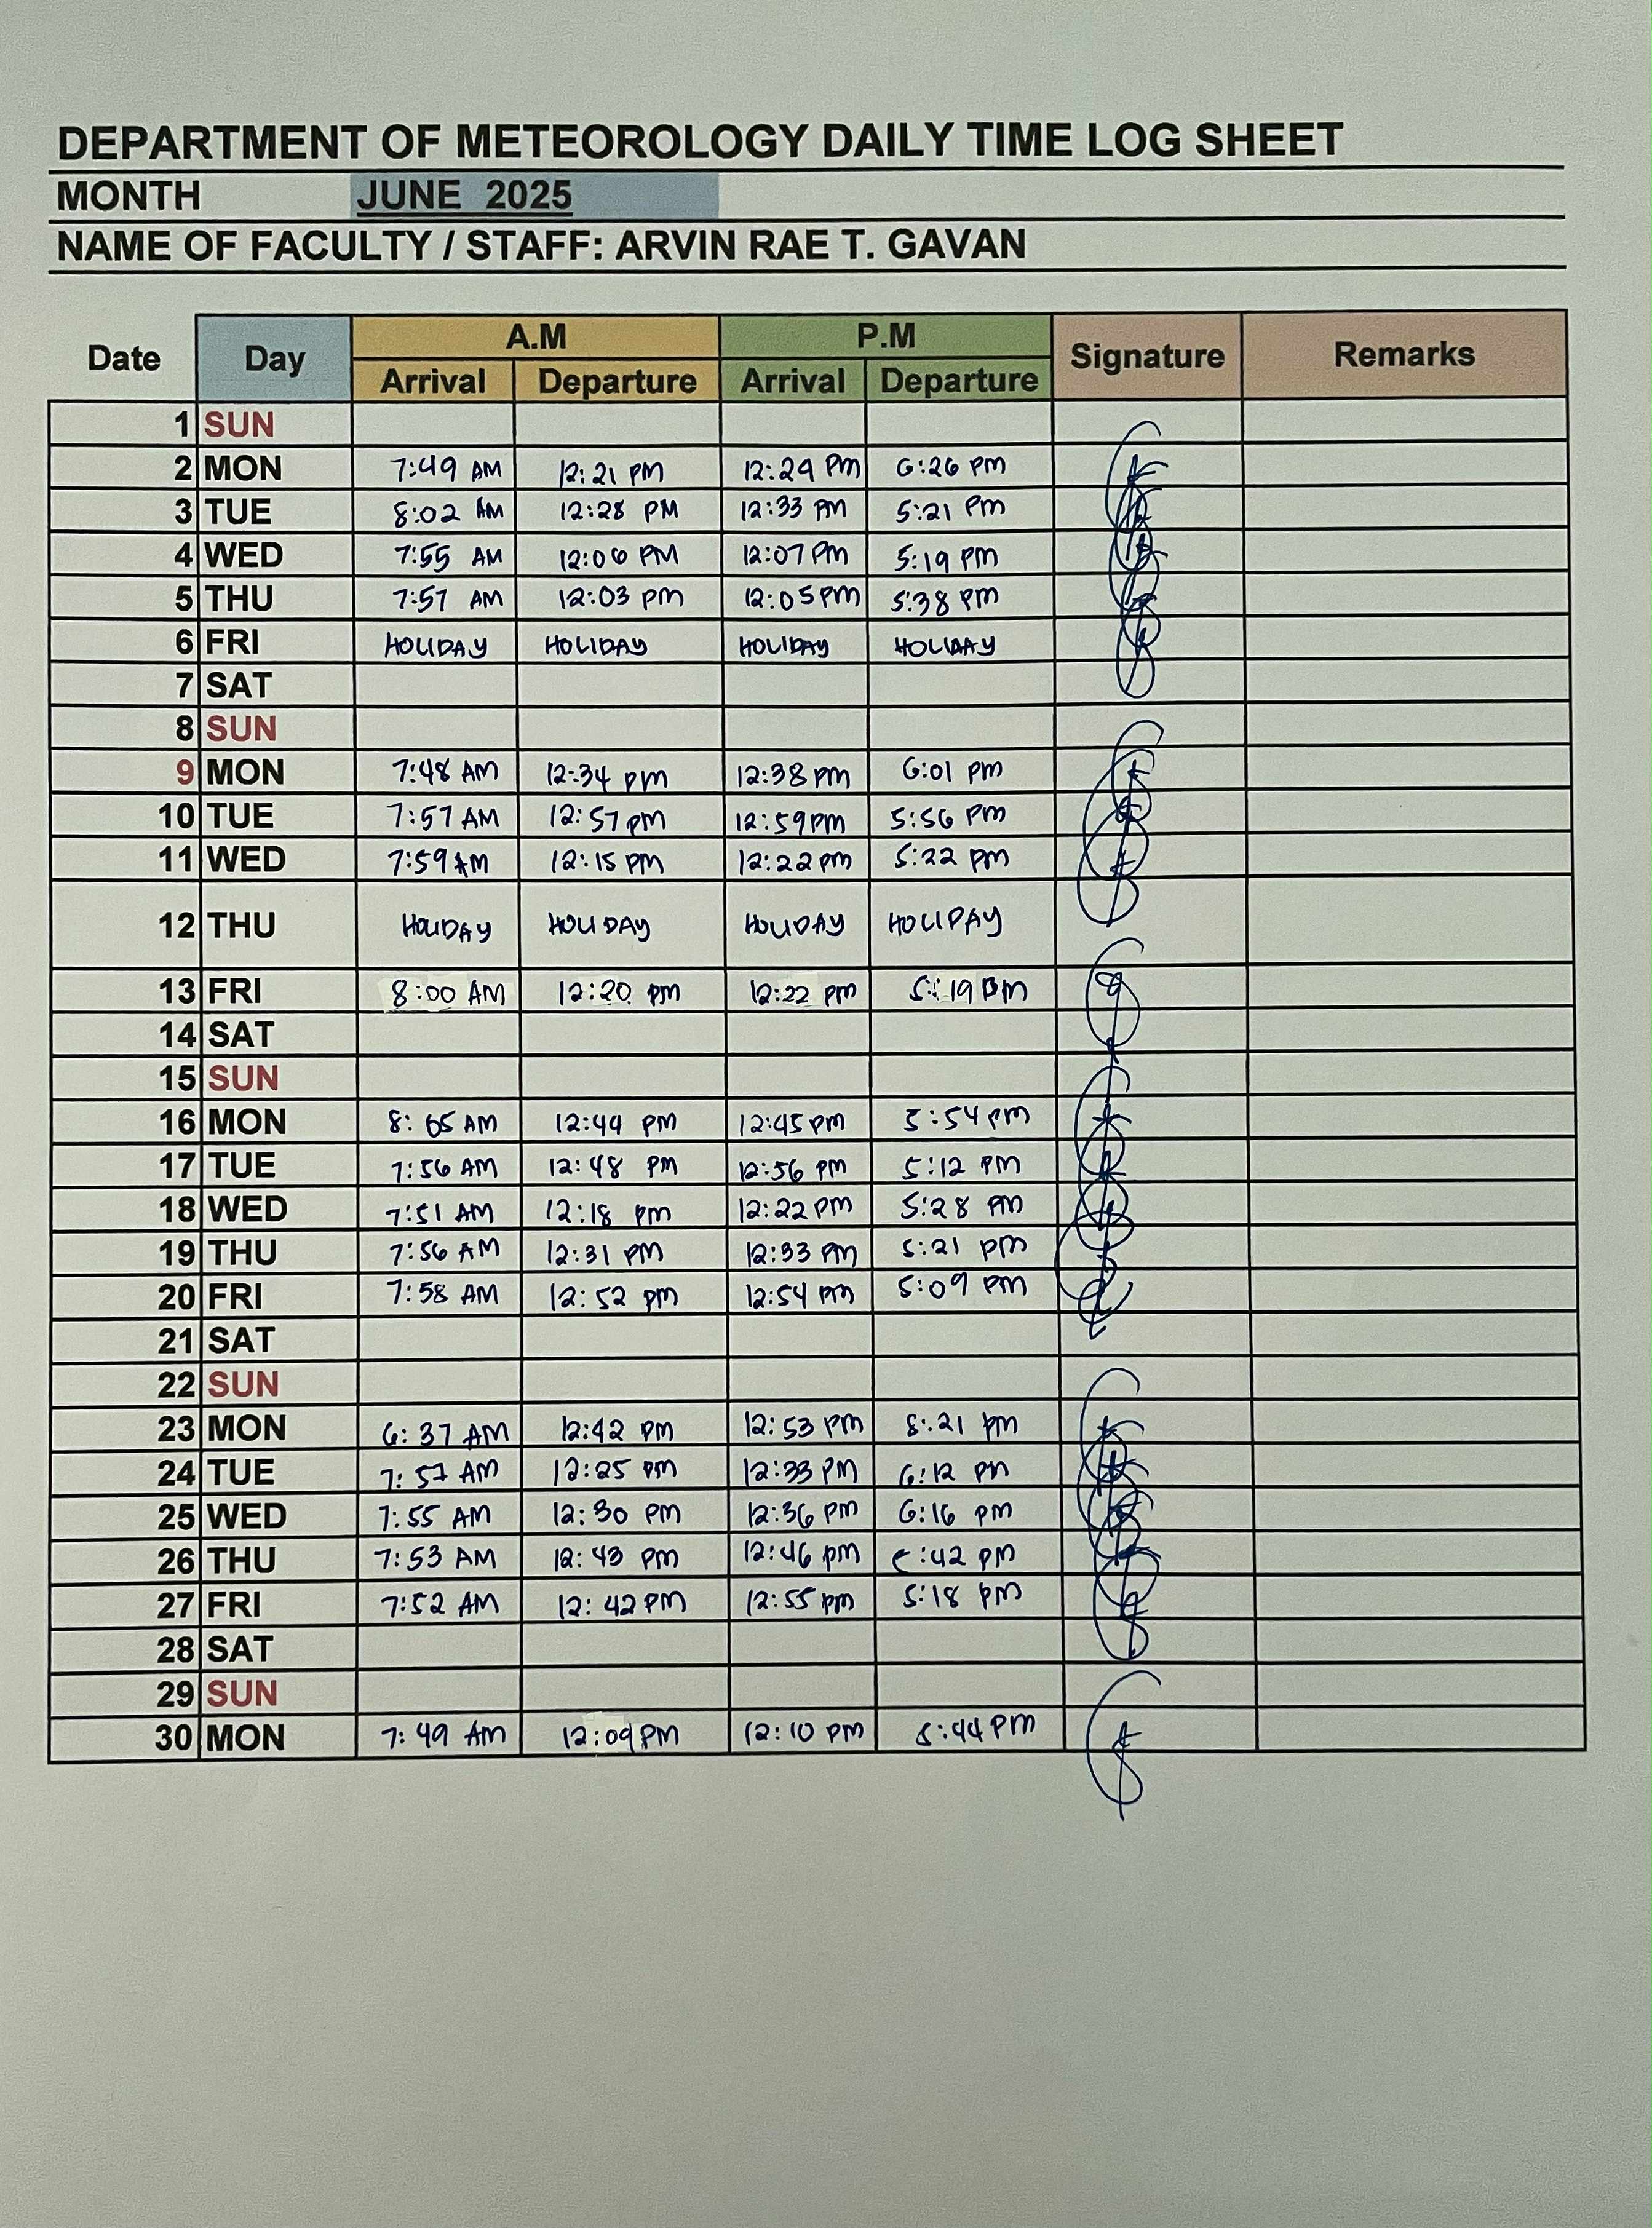 DEPARTMENT OF METEOROLOGY DAILY TIME LOG SHEET
MONTH JUNE 2025
NAME OF FACULTY / STAFF: ARVIN RAE T. GAVAN
Date Day A.M P.M Signature Remarks
Arrival Departure Arrival Departure
1 SUN
2 MON 7:49 AM 12:21 PM 12:24 PM 6:26 PM
3 TUE 8:02 AM 12:28 PM 12:33 PM 5:21 PM
4 WED 7:55 AM 12:06 PM 12:07 PM 5:19 PM
5 THU 7:57 AM 12:03 PM 12:05 PM 5:38 PM
6 FRI HOLIDAY HOLIDAY HOLIDAY HOLIDAY
7 SAT
8 SUN
9 MON 7:48 AM 12:34 PM 12:38 PM 6:01 PM
10 TUE 7:57 AM 12:57 PM 12:59 PM 5:56 PM
11 WED 7:59 AM 12:15 PM 12:22 PM 5:22 PM
12 THU HOLIDAY HOLIDAY HOLIDAY HOLIDAY
13 FRI 8:00 AM 12:20 PM 12:22 PM 5:19 PM
14 SAT
15 SUN
16 MON 8:05 AM 12:44 PM 12:45 PM 5:54 PM
17 TUE 7:56 AM 12:48 PM 12:56 PM 5:12 PM
18 WED 7:51 AM 12:18 PM 12:22 PM 5:28 PM
19 THU 7:56 AM 12:31 PM 12:33 PM 5:21 PM
20 FRI 7:58 AM 12:52 PM 12:54 PM 5:09 PM
21 SAT
22 SUN
23 MON 6:37 AM 12:42 PM 12:53 PM PM
24 TUE 7:57 AM 12:25 PM 12:33 PM 6:12 PM
25 WED 7:55 AM 12:30 PM 12:36 PM 6:16 PM
26 THU 7:53 AM 12:43 PM 12:46 PM PM
27 FRI 7:52 AM 12:42 PM 12:55 PM 5:18 PM
28 SAT
29 SUN
30 MON 7:49 AM 12:09 PM 12:10 PM PM